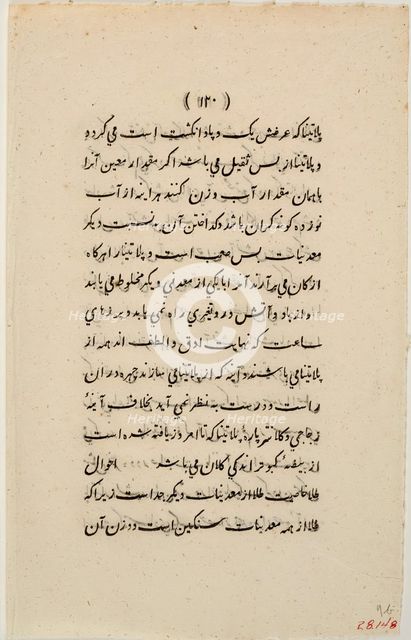 (۱۲۰)
پلاتینا که عرضش یک و پاد انگشت است می گردد و
و پلاتینا از بس ثقیل می باشد اگر مقدار معین آنرا
باهمان مقدار آب وزن کنند هر اینه از آب
نوزده گونه گران باشد و گداختن آن به نسبت دیگر
معدنیات بس صعب است و پلاتینا را هرگاه
از کان می برآرند آنرا با یکی از معدنی دیگر مخلوط می یابند
و از باد و آتش در و تغیری راه نمی یابد و پرزهای
ساعت که نهایت ادق و الطف اند همه از
پلاتینا می باشند و آینه که از پلاتینا می سازند چهره در ان
راست و درست به نظر نمی آید بخلاف آینهٔ
زجاجی و کلانتر پارهٔ پلاتینا که تا امروز یافته شده است
از بیضهٔ کبوتر اندکی کلان می باشد احوال
طلا خاصیت طلا از معدنیات دیگر جداست زیرا که
طلا از همه معدنیات سنگین است و وزن آن
Heritage
Heritage
Heritage
Heritage
Heritage
Heritage
©
28.148